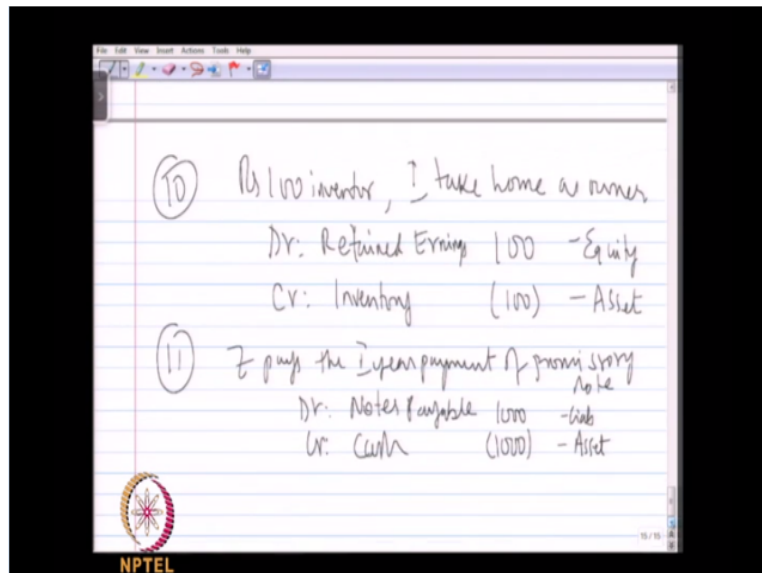 File Edit View Insert Actions Tools Help
10 Rs 100 inventor, I take home as owner
Dr: Retained Erning 100 -Equity
Cr: Inventory (100) - Asset
11 Z pays the I year payment of promissory
note
Dr: Notes Payable 1000 -Liab
Cr: Cash (1000) - Asset
15 / 15
NPTEL